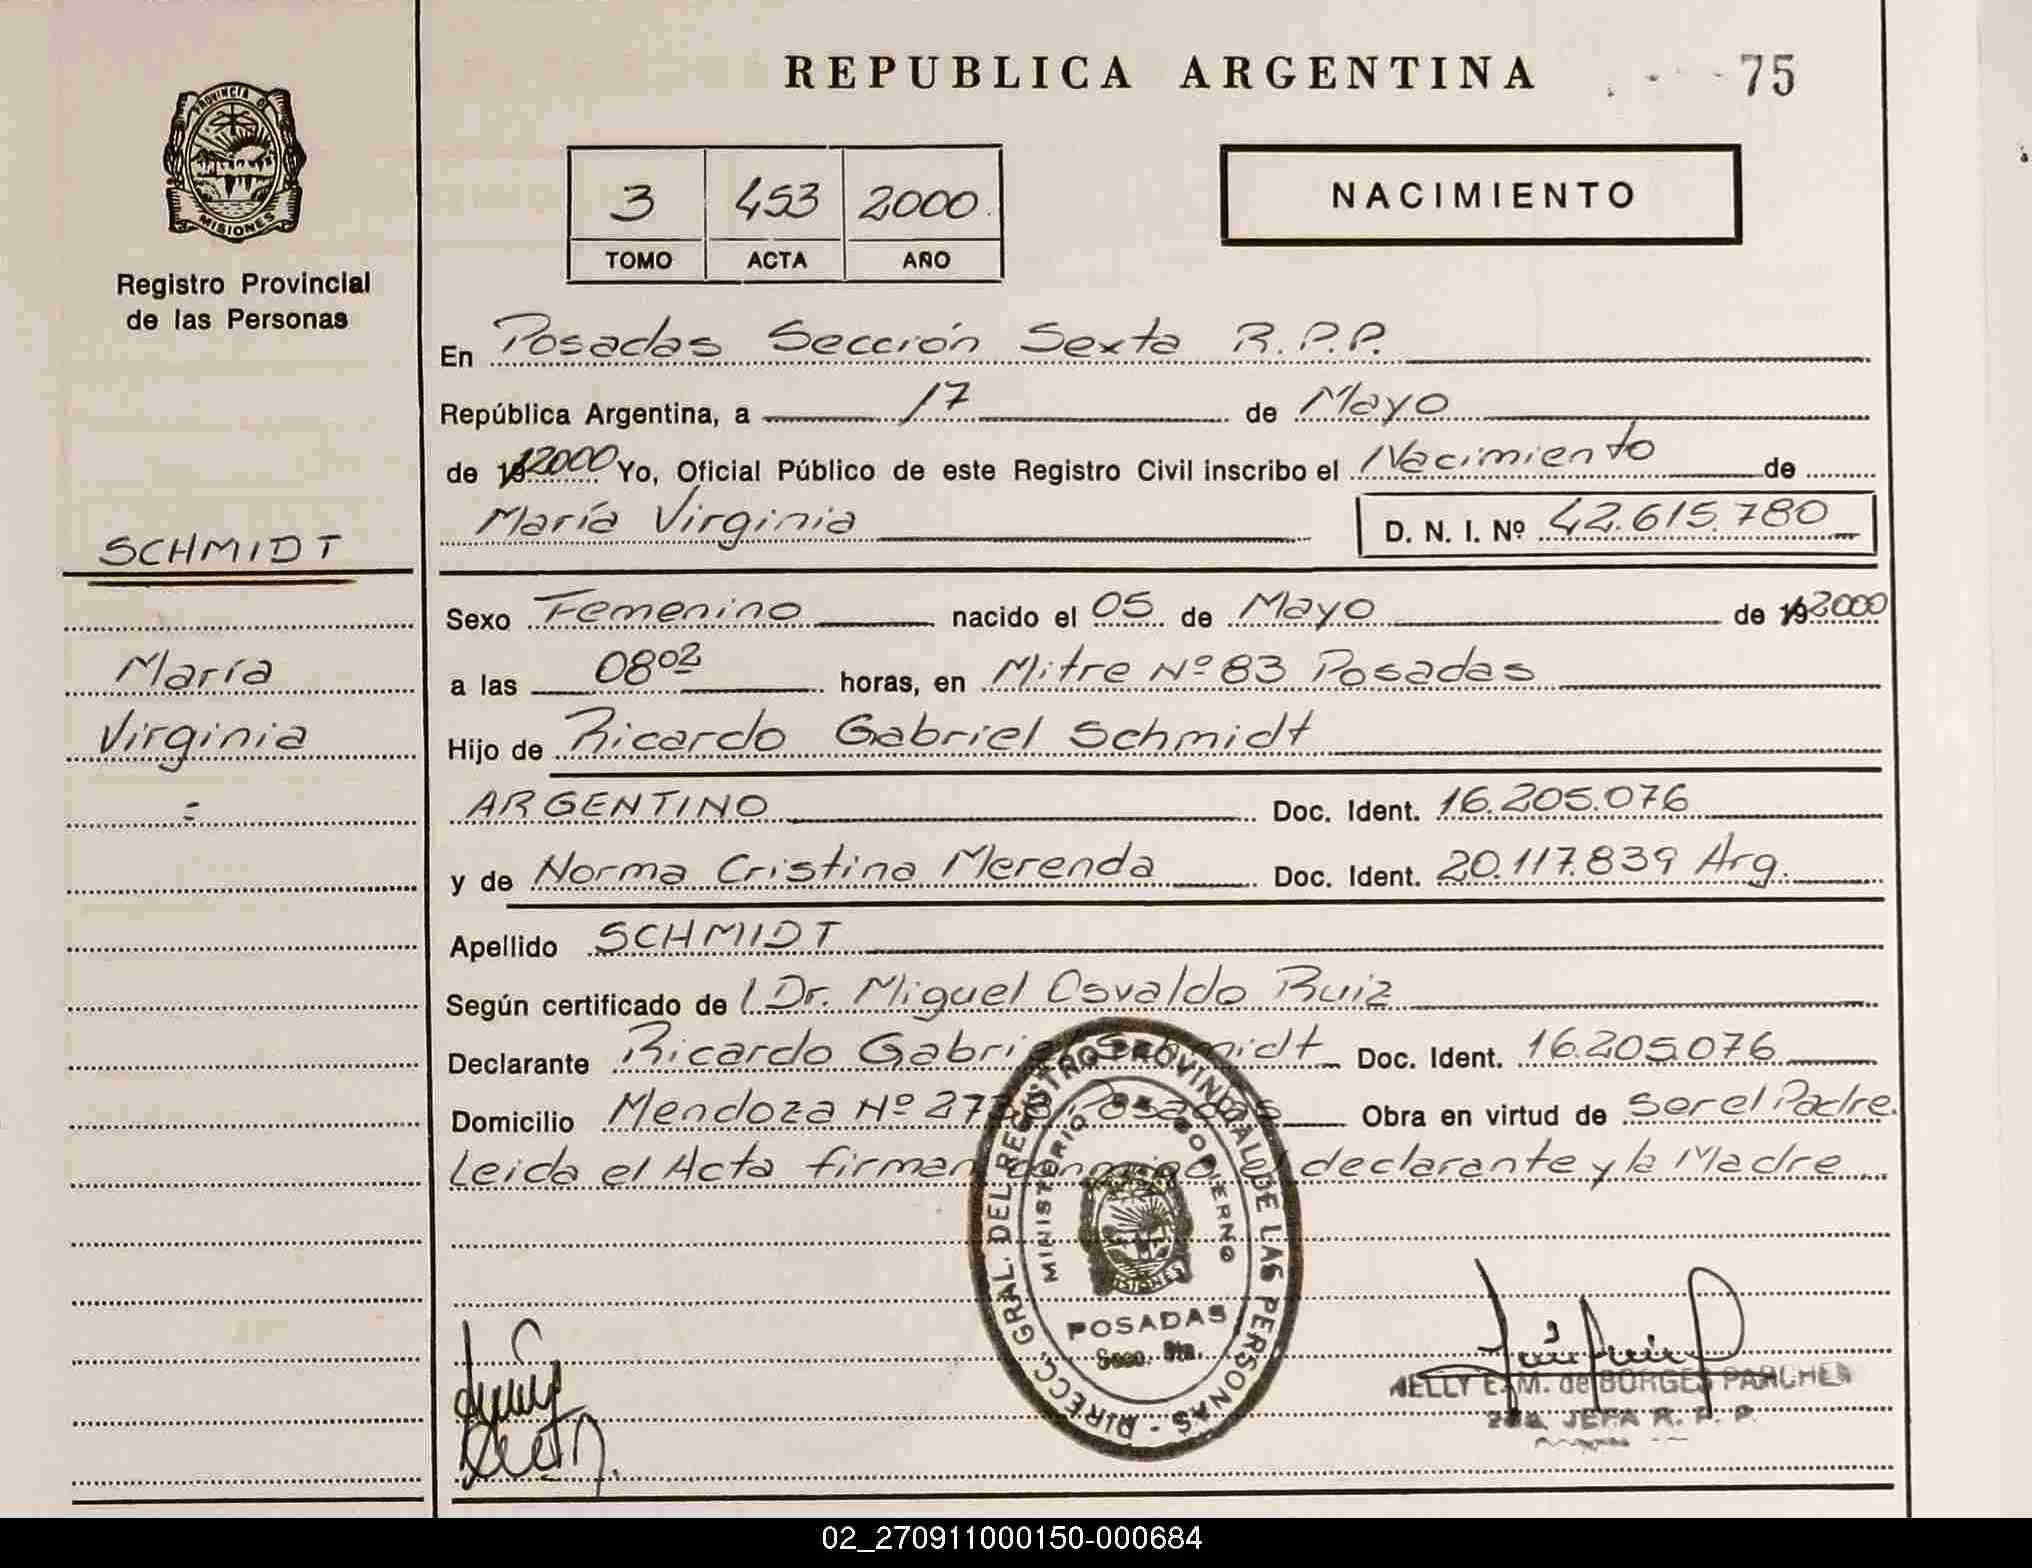 REPUBLICA ARGENTINA
75
PROVINCIA D
MISIONES
Registro Provincial
de las Personas
3 453 2000
TOMO ACTA AÑO
NACIMIENTO
En Posadas Sección Sexta R.P.P.
República Argentina, a 17 de Mayo
de 19 2000 Yo, Oficial Público de este Registro Civil inscribo el Nacimiento de
María Virginia D. N. I. Nº 42.615.780
SCHMIDT
María
Virginia
Sexo Femenino nacido el 05 de Mayo de 19 2000
a las 08 02 horas, en Mitre Nº 83 Posadas
Hijo de Ricardo Gabriel Schmidt
ARGENTINO Doc. Ident. 16.205.076
y de Norma Cristina Merenda Doc. Ident. 20.117.839 Arg.
Apellido SCHMIDT
Según certificado de l Dr. Miguel Osvaldo Ruiz
Declarante Ricardo Gabriel Schmidt Doc. Ident. 16.205.076
Domicilio Mendoza Nº Posadas Obra en virtud de Ser el Padre.
Leida el Acta firman conmigo el declarante y la Madre
DIRECC. GRAL. DEL REGISTRO PROVINCIAL DE LAS PERSONAS -
MINISTERIO DE GOBIERNO
MISIONES
POSADAS
Secc. 6ta.
NELLY E. M. de BORGES PARCHEN
JEFA R. P. P.
02_270911000150-000684